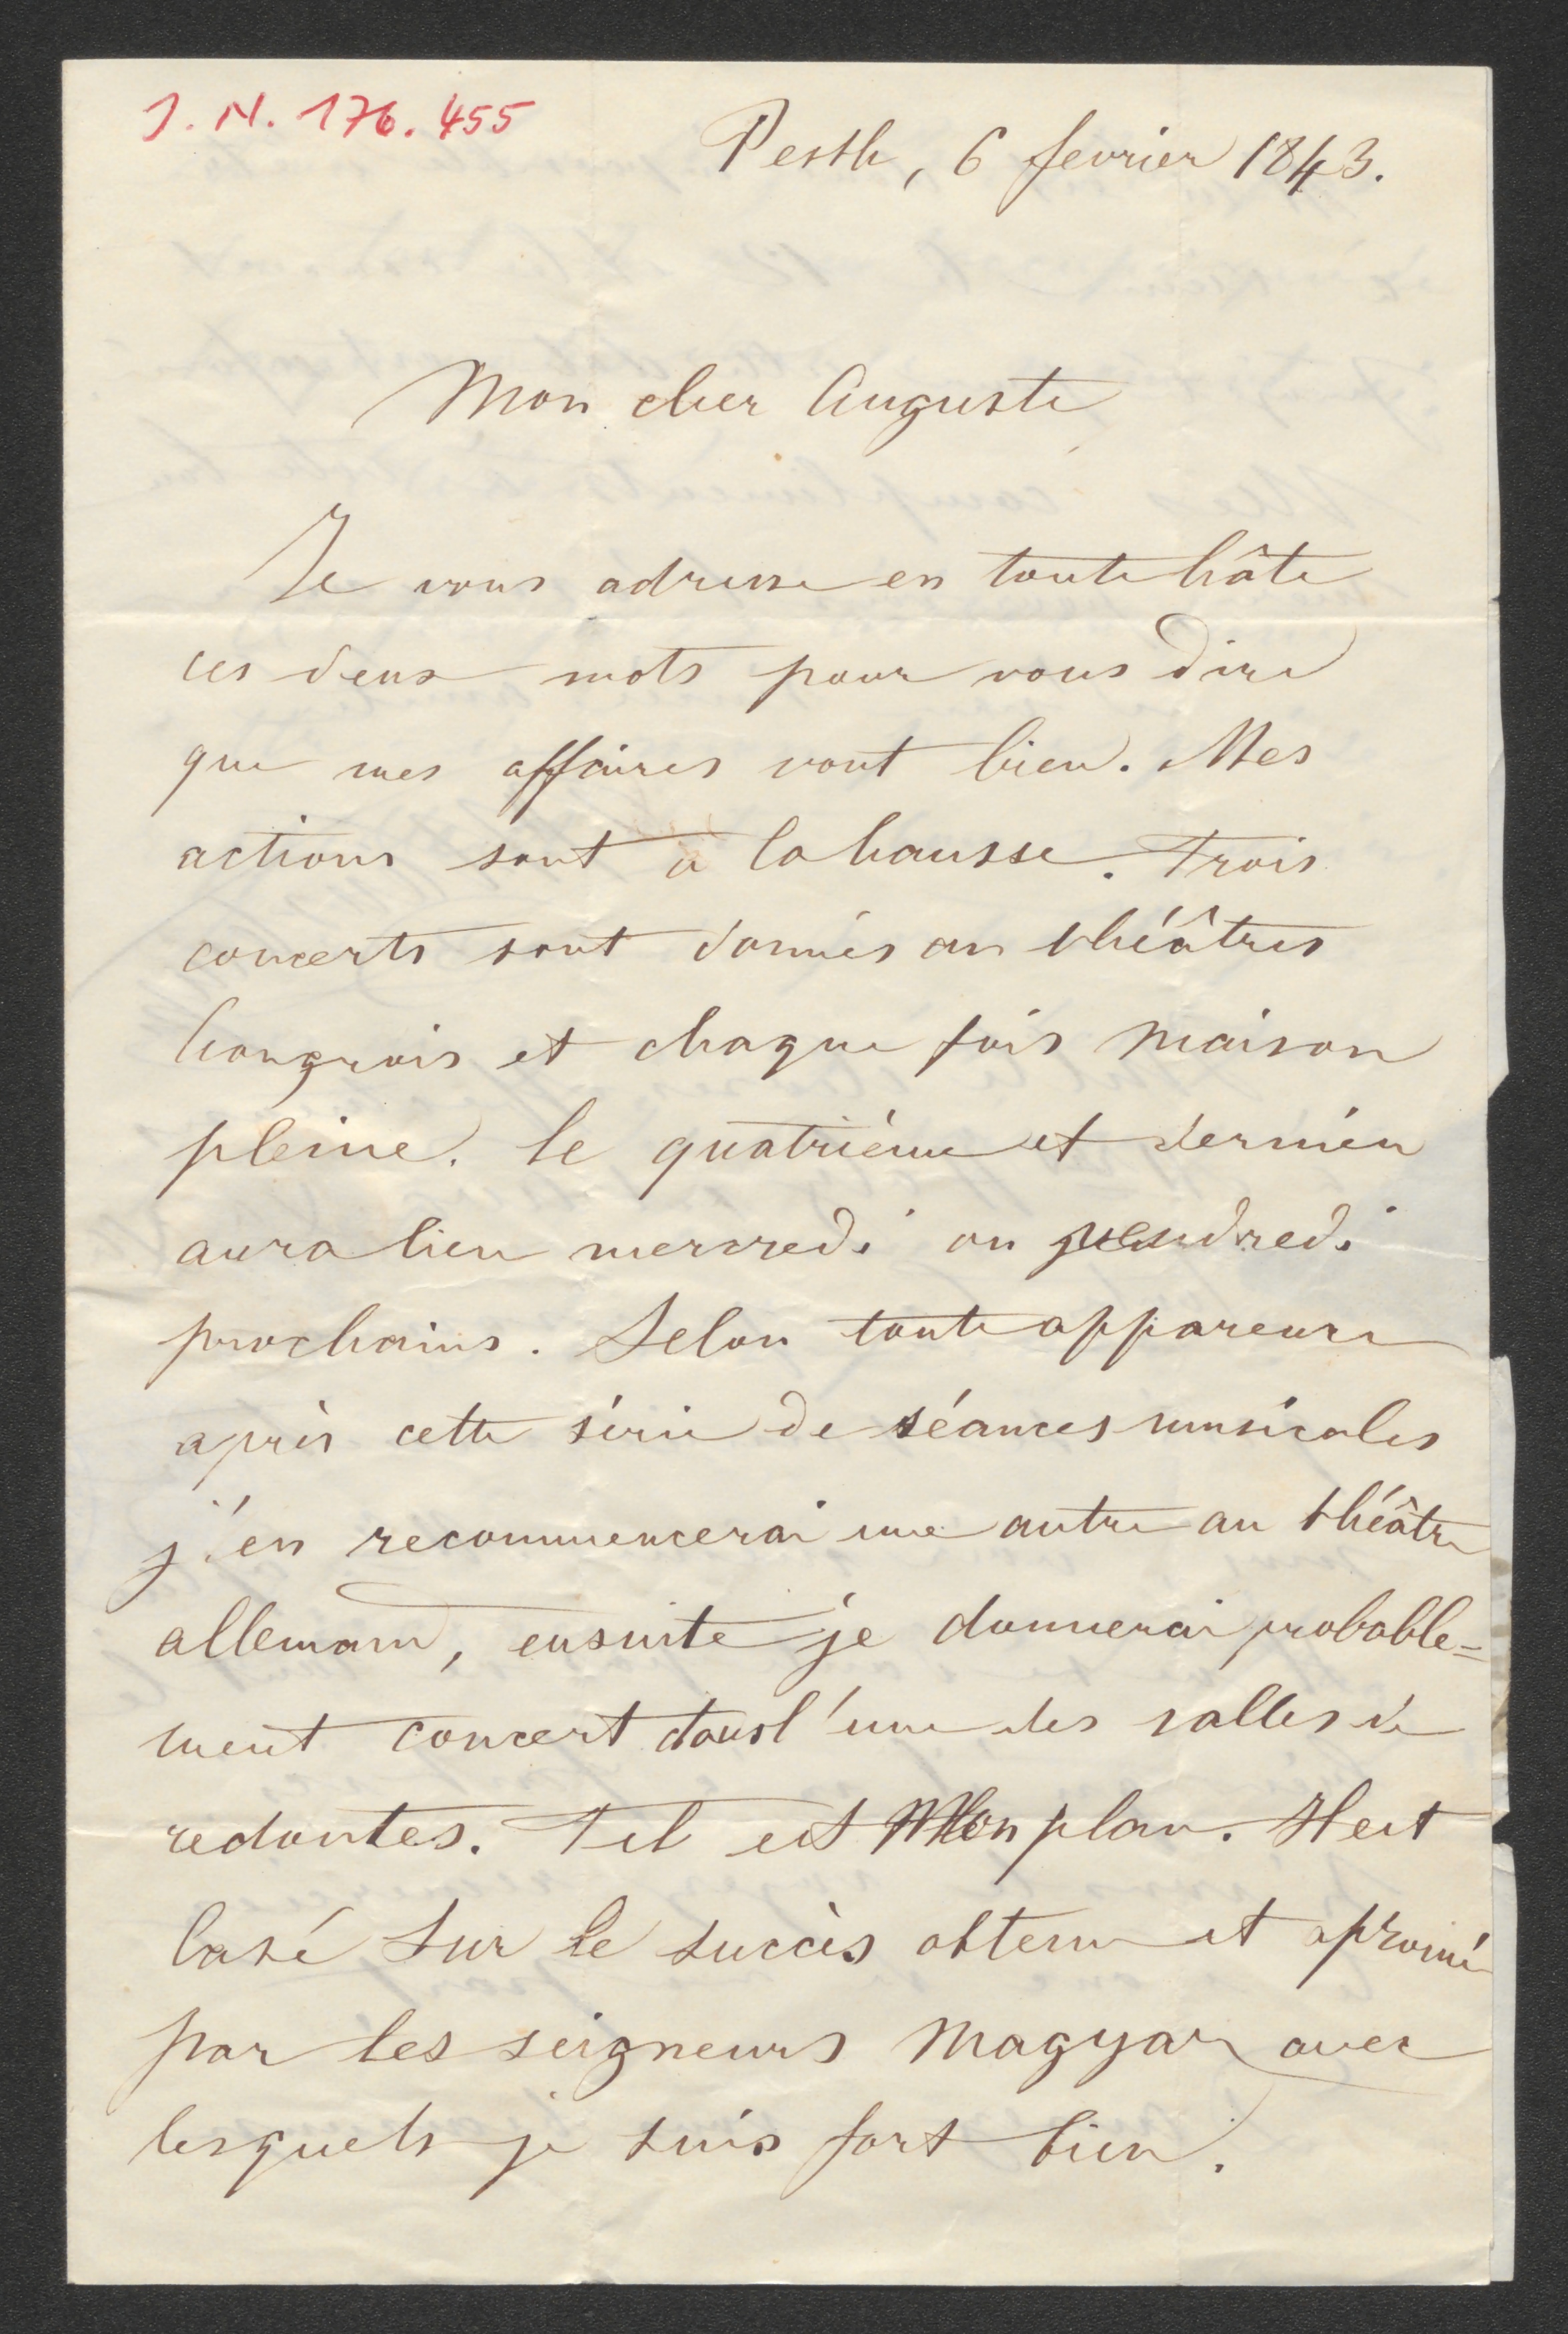 J. N. 176.455
Pesth, 6 fevrier 1843.
Mon cher Auguste
Je vous adresse en toute hâte
ces deux mots pour vous dire
que mes affaires vont bien. Mes
actions sont à la hausse. Trois
concerts sont donnés au théâtres
hongrois et chaque fois maison
pleine. Le quatrième et dernier
aura lieu mercredi ou vendredi
prochains. Selon toute apparence
après cette série de séances musicales
j'en recommencerai une autre au théâtre
allemand, ensuite je donnerai probable=
ment concert dans l'une des salles de
redoutes. Tel est Mon plan. Il est
basé sur le succès obtenu et
par les seigneurs Magyar avec
lesquels je suis fort bien.